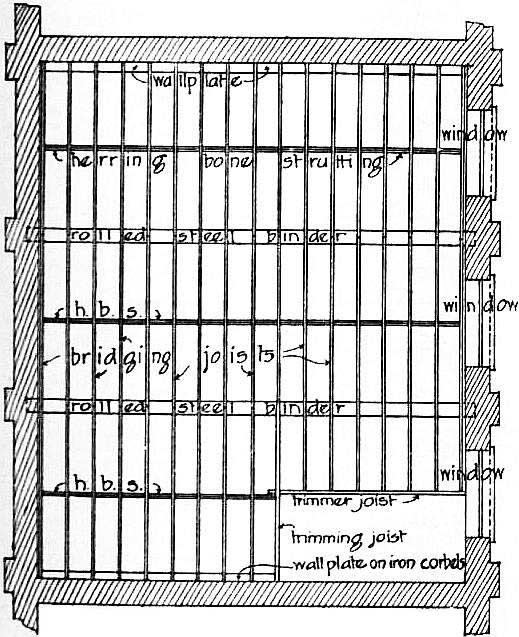 wall plate
window
herring bone strutting
rolled steel binder
window
h. b. s.
bridging joists
rolled steel binder
window
h. b. s.
trimmer joist
trimming joist
wall plate on iron corbels